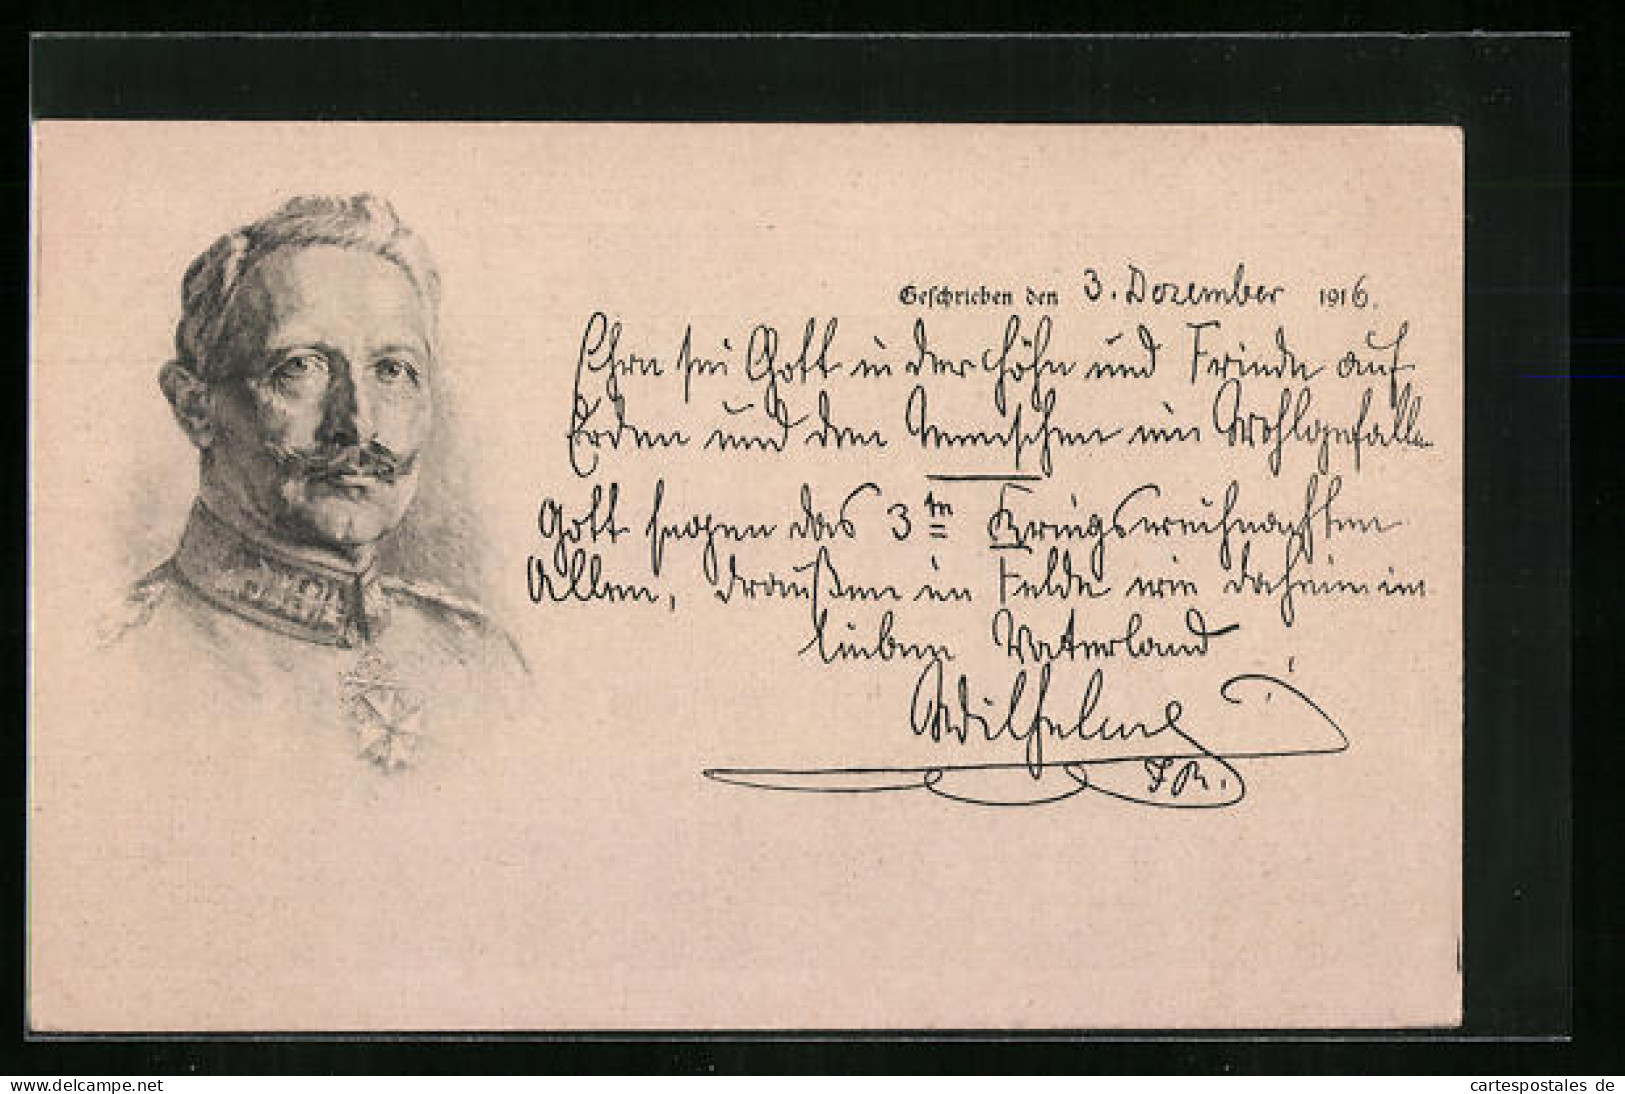 Geschrieben den 3. Dezember 1916.
Ehre sei Gott in der Höhe und Friede auf
Erden und den Menschen ein Wohlgefallen
Gott segen das 3te Kriegsweihnachten
Allen, draußen im Felde wie daheim im
lieben Vaterland
Wilhelm
I.R.
www.delcampe.net
cartespostales de